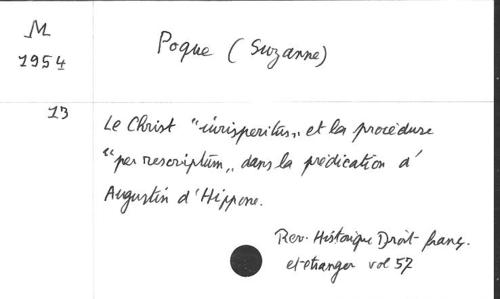 M
1954
Poque (Suzanne)
13
Le Christ "iurisperitus" et la procédure
"per rescriptum" dans la prédication d'
Augustin d'Hippone.
Rev. Historique Droit franç.
et etranger vol 57